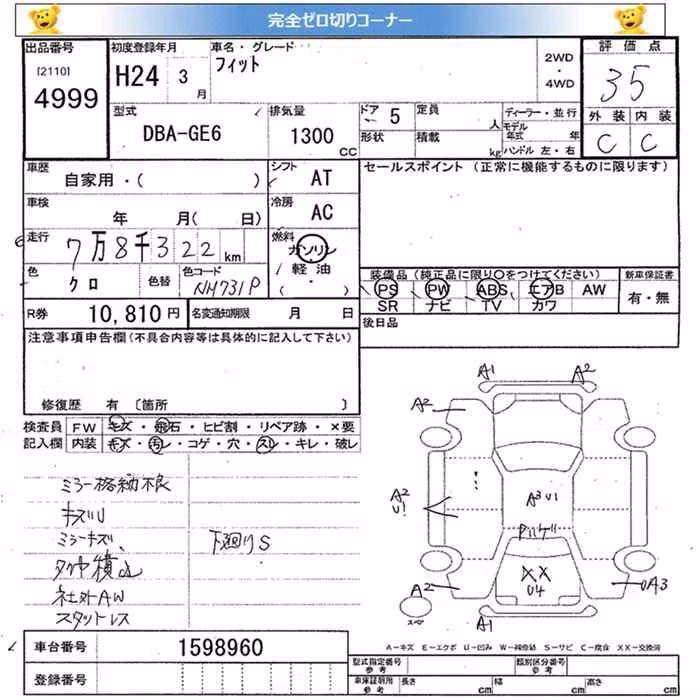 完全ゼロ切りコーナー
出品番号 初度登録年月 車名・グレード 評価点
[2110] H24 3月 フィット 2WD・4WD 35
4999
型式 排気量 ドア 5 定員 人 ディーラー・並行 外装 内装
DBA-GE6 1300 CC 形状 積載 kg モデル年式 年 C C
ハンドル 左・右
車歴 シフト セールスポイント(正常に機能するものに限ります)
自家用・( ) AT
車検 冷房
年 月(日) AC
走行 7万8千322km 燃料 ガソリン
軽油
・( )
色 クロ 色替 色コード NH731P
装備品(純正品に限り〇をつけてください) 新車保証書
PS PW ABS エアB AW 有・無
SR ナビ TV カワ
R券 10,810円 名変通知期限 月 日 後日品
注意事項申告欄(不具合内容等は具体的に記入して下さい)
修復歴 有 〔箇所 〕
検査員 FW キズ・飛石・ヒビ割・リペア跡・×要
記入欄 内装 キズ・汚レ・コゲ・穴・スレ・キレ・破レ
ミラー格納不良
キズU
ミラーキズ、 下廻りS
タイヤ積込
社外AW
スタットレス
A1 A2
A2
A2 U1 A3 U1
XX U4
A2 UA3
スペア A1
A−キズ E−エクボ U−凹み W−補修跡 S−サビ C−腐食 XX−交換済
車台番号 1598960
登録番号
型式指定番号 参考 類別区分番号 参考
車庫証明用 参考 長さ cm 幅 cm 高さ cm